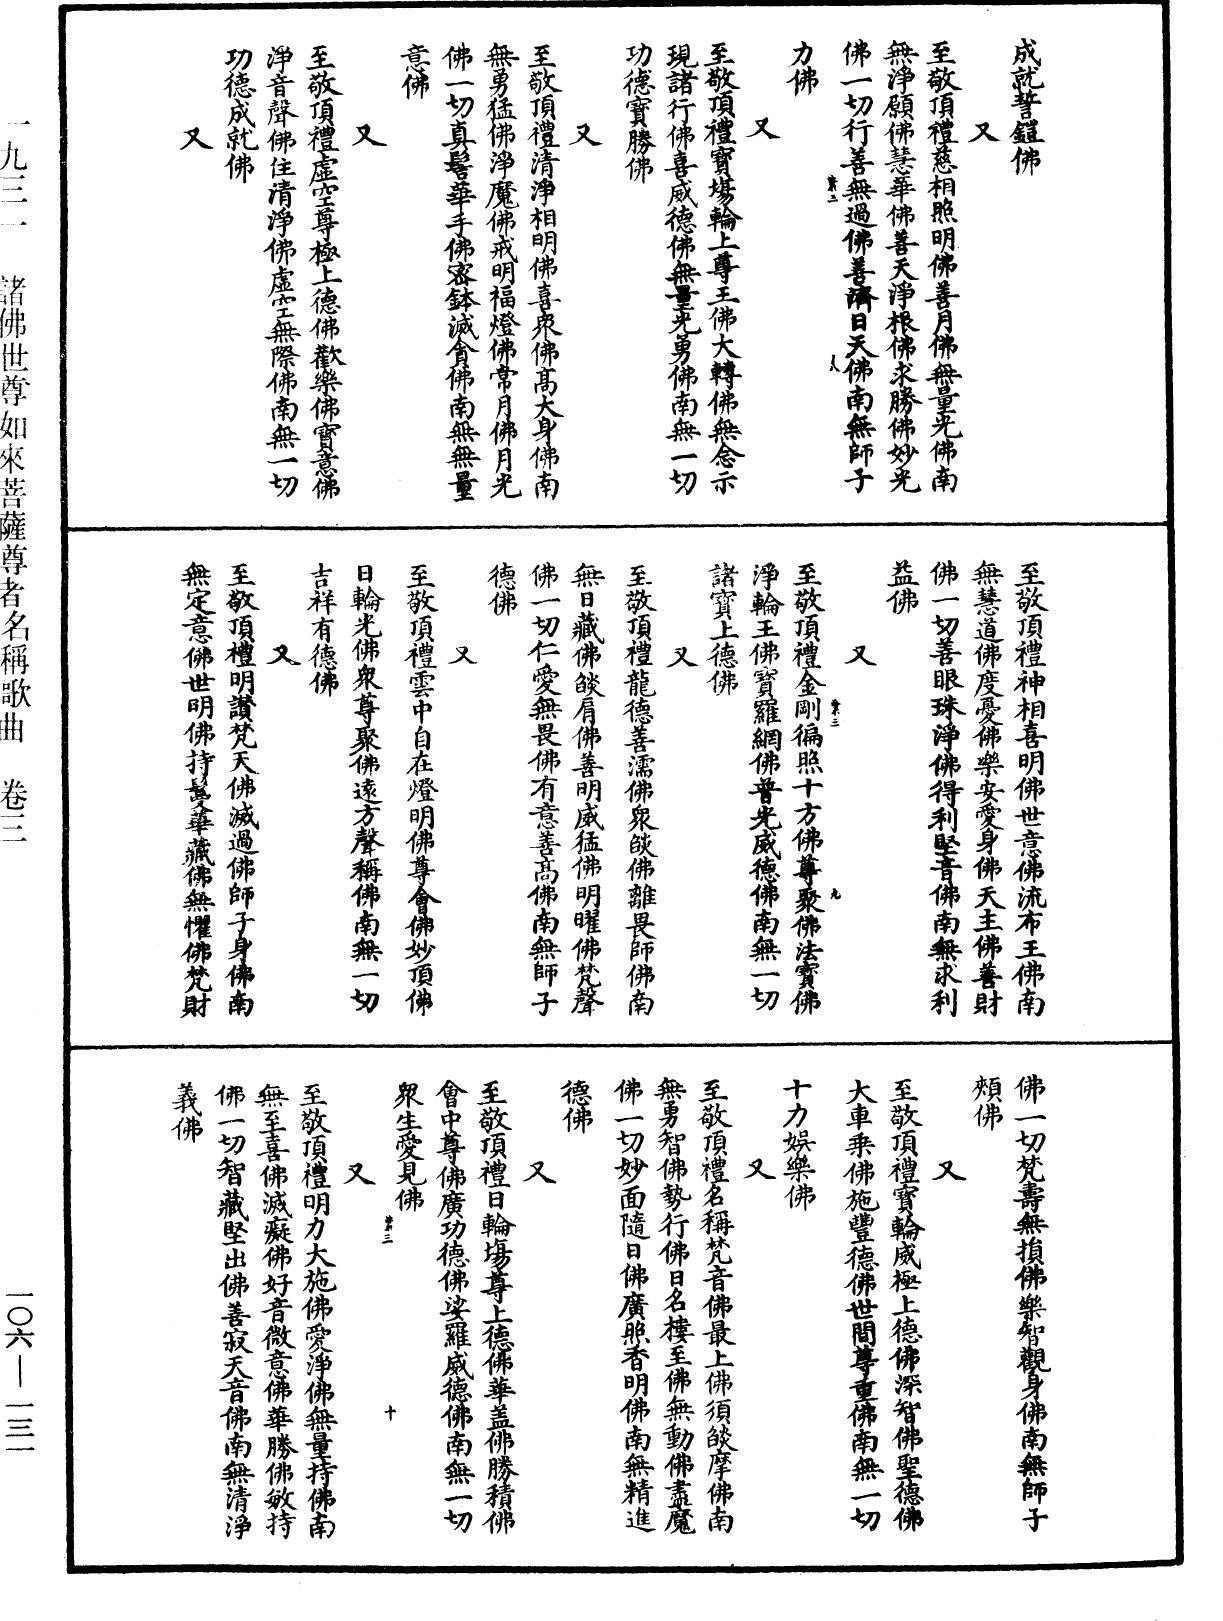 成就誓鎧佛
又
至敬頂禮慈相照明佛善月佛無量光佛南
無淨願佛慧華佛善天淨根佛求勝佛妙光
佛一切行善無過佛善濟日天佛南無師子
力佛
又
至敬頂禮寶場輪上尊王佛大轉佛無念示
現諸行佛喜威德佛無量光勇佛南無一切
功德寶勝佛
又
至敬頂禮清淨相明佛喜眾佛高大身佛南
無勇猛佛淨魔佛戒明福燈佛常月佛月光
佛一切真髻華手佛密鉢滅貪佛南無無量
意佛
又
至敬頂禮虛空尊極上德佛歡樂佛寶意佛
淨音聲佛住清淨佛虛空無際佛南無一切
功德成就佛
又
至敬頂禮神相喜明佛世意佛流布王佛南
無慧道佛度憂佛樂安愛身佛天主佛善財
佛一切善眼珠淨佛得利堅音佛南無求利
益佛
又
至敬頂禮金剛徧照十方佛尊聚佛法寶佛
淨輪王佛寶羅網佛普光威德佛南無一切
諸寶上德佛
又
至敬頂禮龍德善濡佛眾燄佛離畏師佛南
無日藏佛燄肩佛善明威猛佛明曜佛梵聲
佛一切仁愛無畏佛有意善高佛南無師子
德佛
又
至敬頂禮雲中自在燈明佛尊會佛妙頂佛
日輪光佛眾尊聚佛遠方聲稱佛南無一切
吉祥有德佛
又
至敬頂禮明讚梵天佛滅過佛師子身佛南
無定意佛世明佛持鬘華藏佛無懼佛梵財
佛一切梵壽無損佛樂智觀身佛南無師子
頰佛
又
至敬頂禮寶輪威極上德佛深智佛聖德佛
大車乘佛施豐德佛世間尊重佛南無一切
十力娛樂佛
又
至敬頂禮名稱梵音佛最上佛須燄摩佛南
無勇智佛勢行佛日名樓至佛無動佛盡魔
佛一切妙面隨日佛廣照香明佛南無精進
德佛
又
至敬頂禮日輪場尊上德佛華盖佛勝積佛
會中尊佛廣功德佛娑羅威德佛南無一切
眾生愛見佛
又
至敬頂禮明力大施佛愛淨佛無量持佛南
無至喜佛滅癡佛好音微意佛華勝佛敏持
佛一切智藏堅出佛善寂天音佛南無清淨
義佛
一九三一 諸佛世尊如來菩薩尊者名稱歌曲 卷三
一〇六—一三一